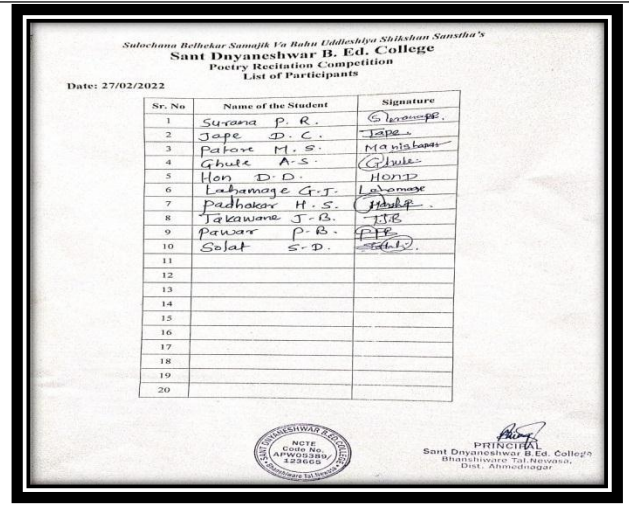 Sulochana Belhekar Samajik Va Bahu Uddieshiya Shikshan Sanstha's
Sant Dnyaneshwar B. Ed. College
Poetry Recitation Competition
List of Participants
Date: 27/02/2022
Sr. No Name of the Student Signature
1 Surana P. R.
2 Jape D. C. Jape
3 Patore M. S.
4 Ghule A.S. Ghule
5 Hon D.D. HOND
6 Lahamage G.J. Lahamage
7 Padhakar H.S.
8 Takawane J-B. TJB
9 Pawar P-B. PPB
10 Solat S-D.
11
12
13
14
15
16
17
18
19
20
SANT DNYANESHWAR B.ED. COLLEGE
NCTE
Code No.
APW05389/
123665
Bhanshiware Tal. Newasa
PRINCIPAL
Sant Dnyaneshwar B.Ed. College
Bhanshiware Tal.Newasa,
Dist. Ahmednagar